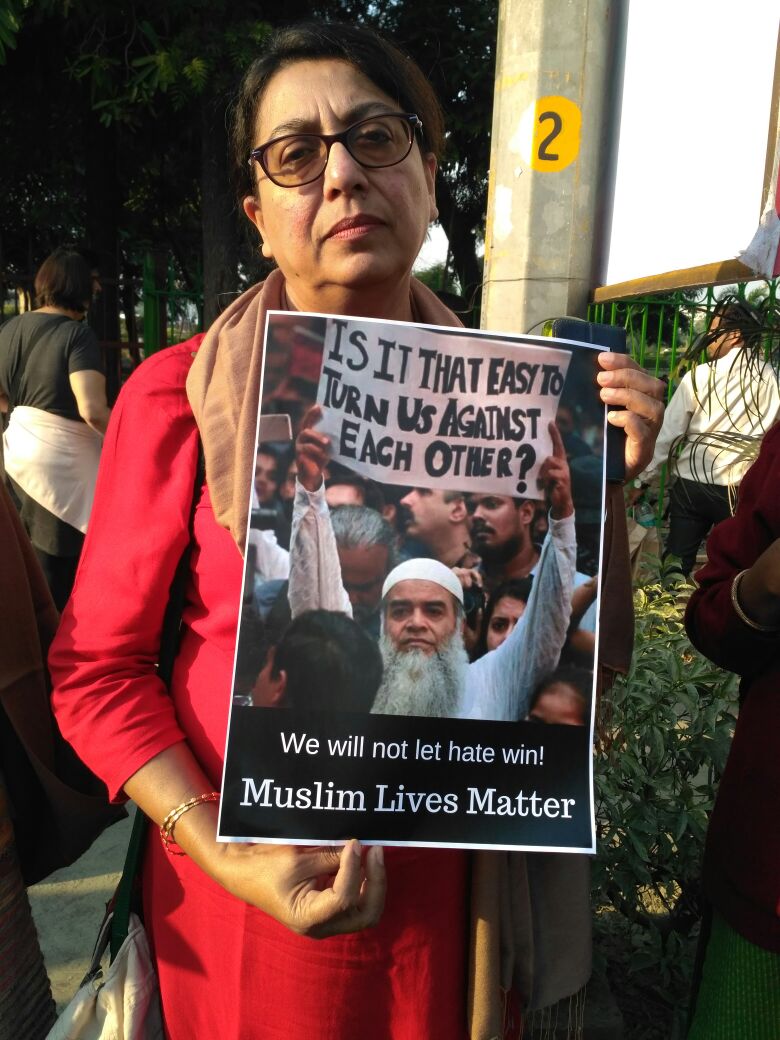 2
IS IT THAT EASY TO
TURN US AGAINST
EACH OTHER?
We will not let hate win!
Muslim Lives Matter